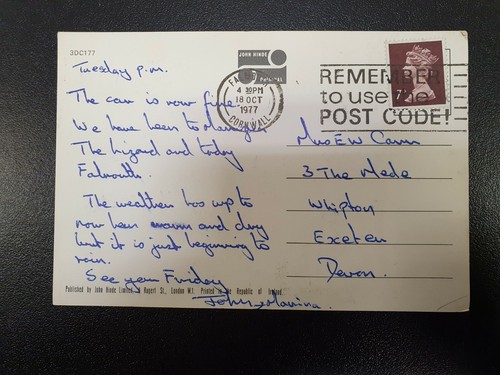 3DC177
JOHN HINDE
ORIGINAL
Tuesday p.m.
The car is now fine
We have been to
The Lizard and today
Falmouth.
The weather has up to
now been warm and dry
but it is just beginning to
rain.
See you Friday
John
FALMOUTH
4 30PM
18 OCT
1977
CORNWALL
REMEMBER
to use the
POST CODE!
7P
Mrs E W Cann
3 The Mede
Whipton
Exeter
Devon.
Published by John Hinde Limited, Rupert St., London W.1. Printed in the Republic of Ireland.